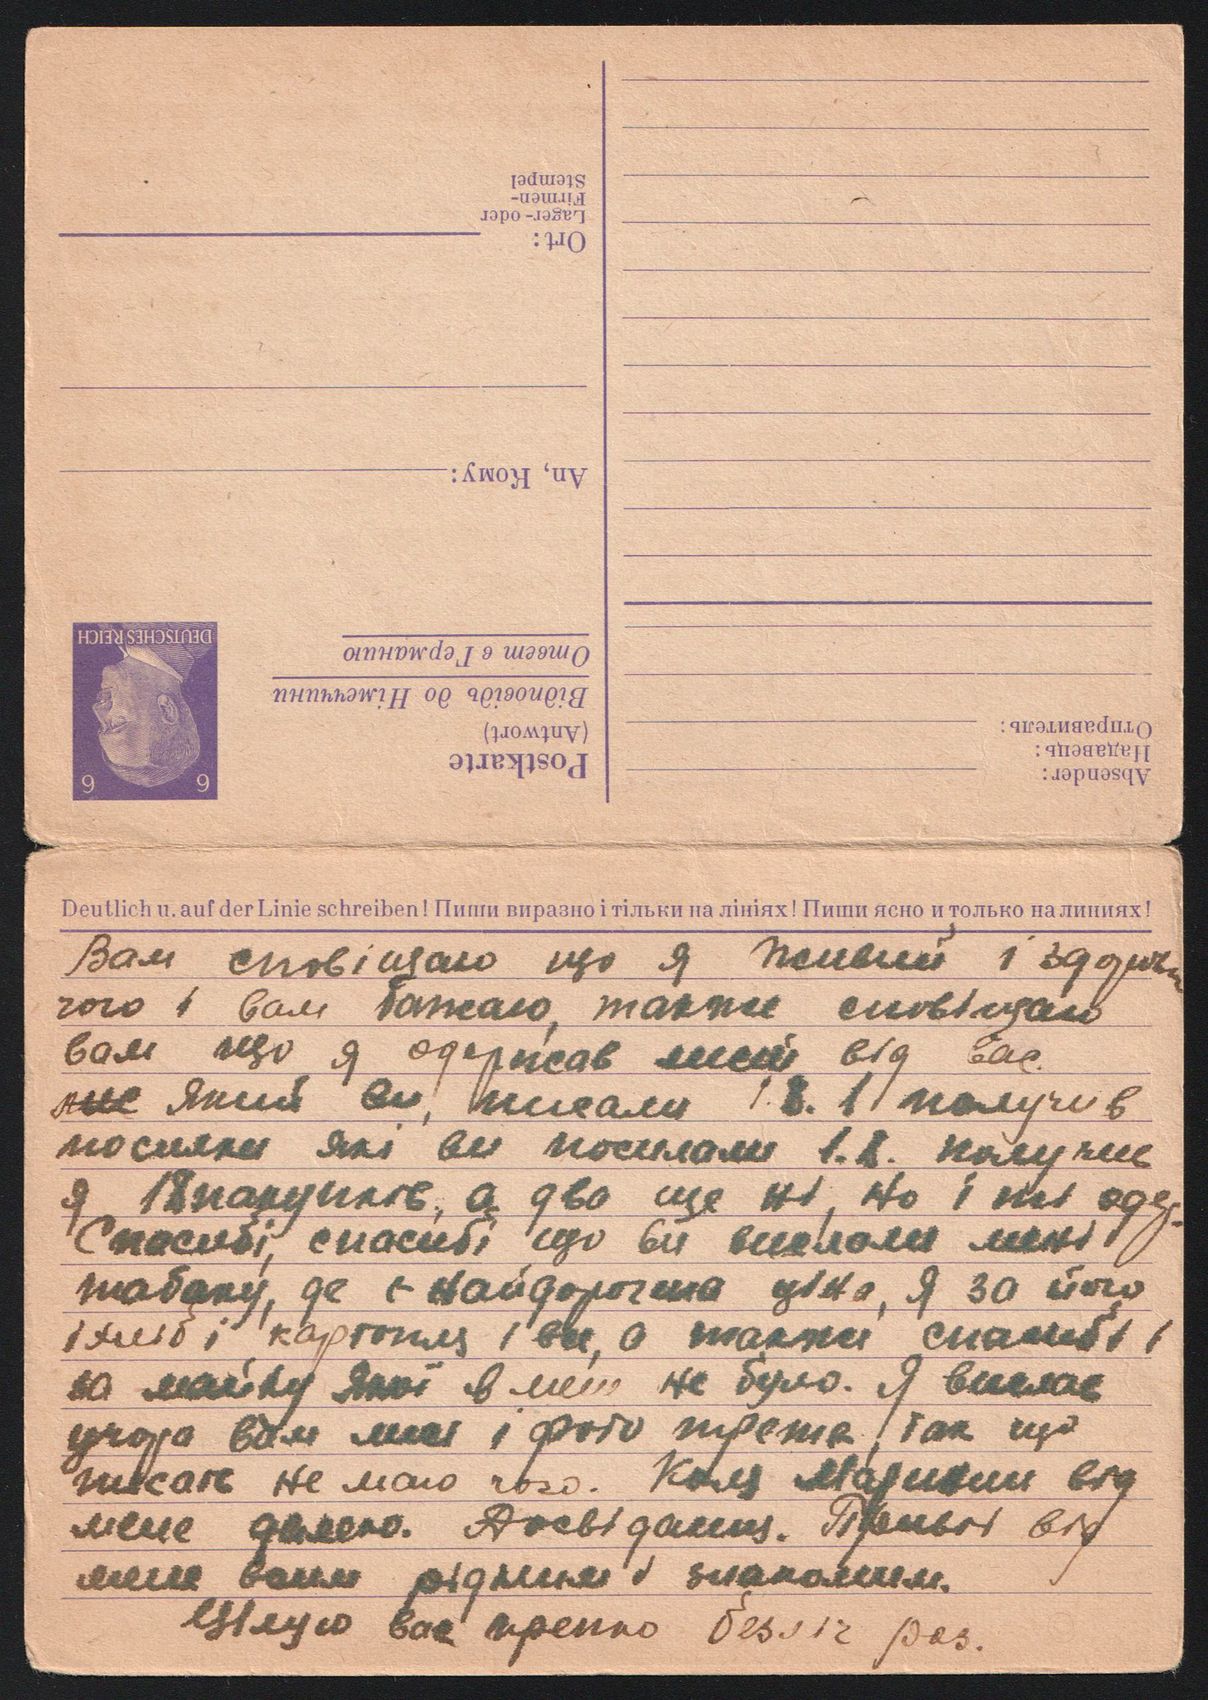 Absender:
Надавець:
Отправитель:
Postkarte
(Antwort)
Відповідь до Німеччини
Ответ в Германию
6 6
DEUTSCHES REICH
An, Кому:
Ort:
Lager- oder
Firmen-
Stempel
Deutlich u. auf der Linie schreiben! Пиши виразно і тільки на лініях! Пиши ясно и только на линиях!
Вам сповіщаю що я живий і здоровий
чого і вам бажаю, также сповіщаю
вам що я одержав лист від вас
який ви, писали 1.8. І получив
посилки які ви посилали 1.8. получив
я 18 пакунків, а два ще ні, но і ті
Спасибі, спасибі що ви вислали мені
табаку, де є найдорогша ціна, я за його
і хліб і картоплі і ви, а также спасибі і
за майку якої в мене не було. Я вислав
учора вам лист і фото третє, так що
писать не маю чого. Коля Марикин від
мене далеко. Досвіданця. Привіт від
мене всим рідним і знакомим.
Цілую вас крепко безліч раз.